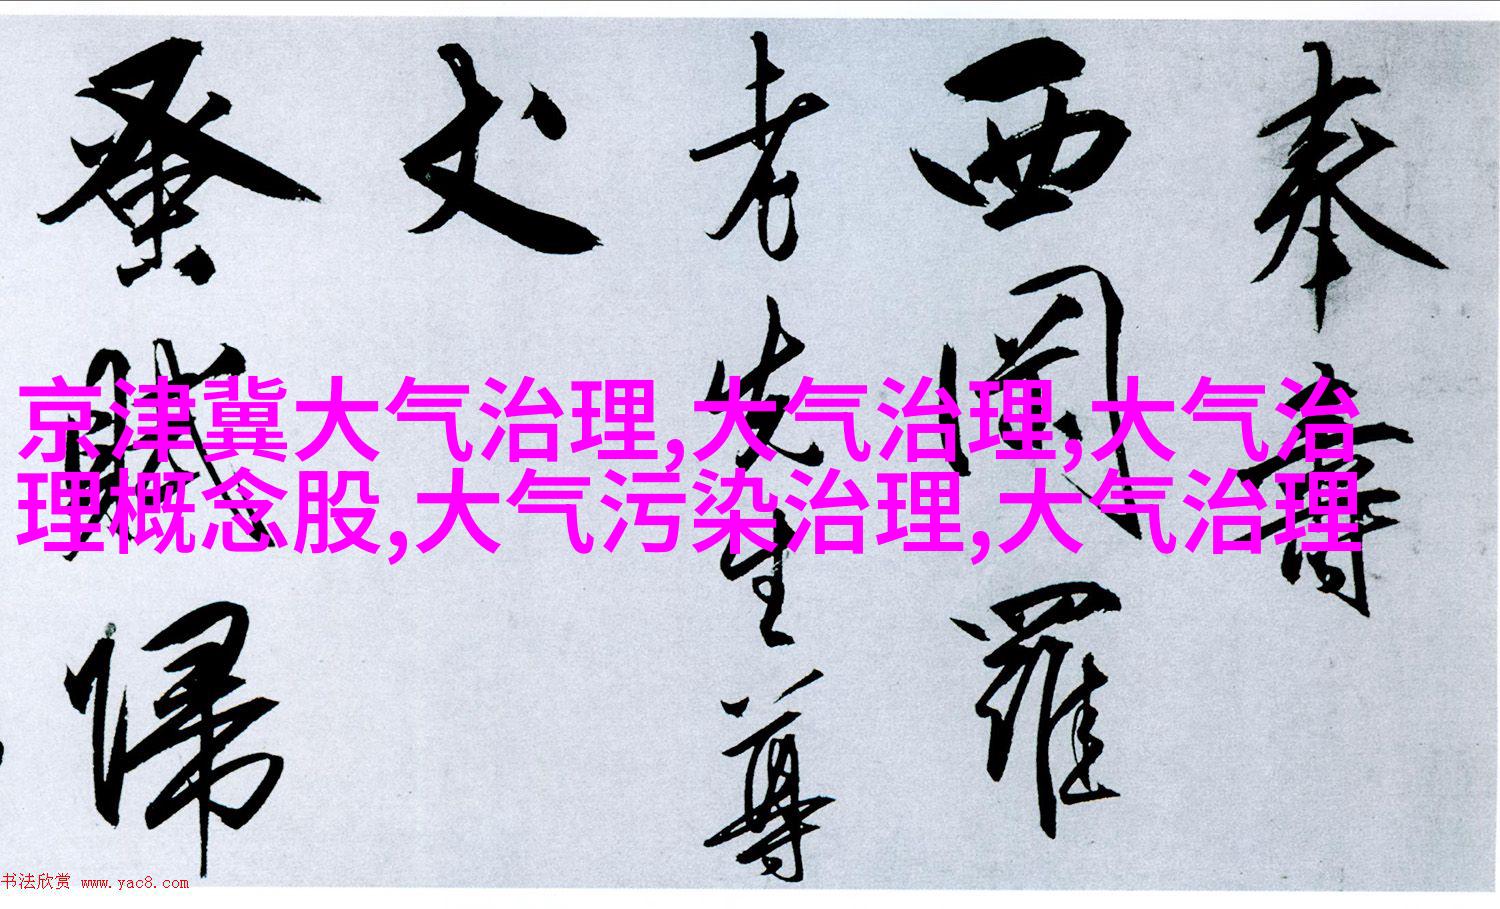 奉壽
西園羅
老先生尊
丈
蚤賦
歸
京津冀大气治理,大气治理,大气治
理概念股,大气污染治理,大气治理
书法欣赏 www.yac8.com